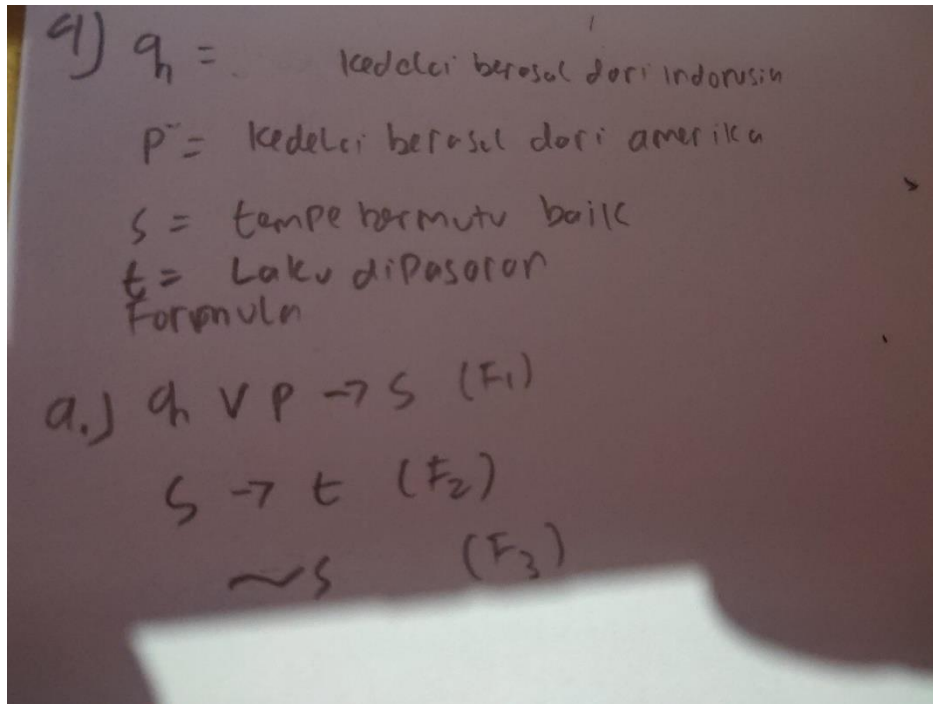 4) q = kedelei berasal dari indonusia
p = kedelei berasal dari amerika
s = tempe bermutu baik
t = Laku dipasaran
Formula
a.) q v p → s (F1)
s → t (F2)
~s (F3)